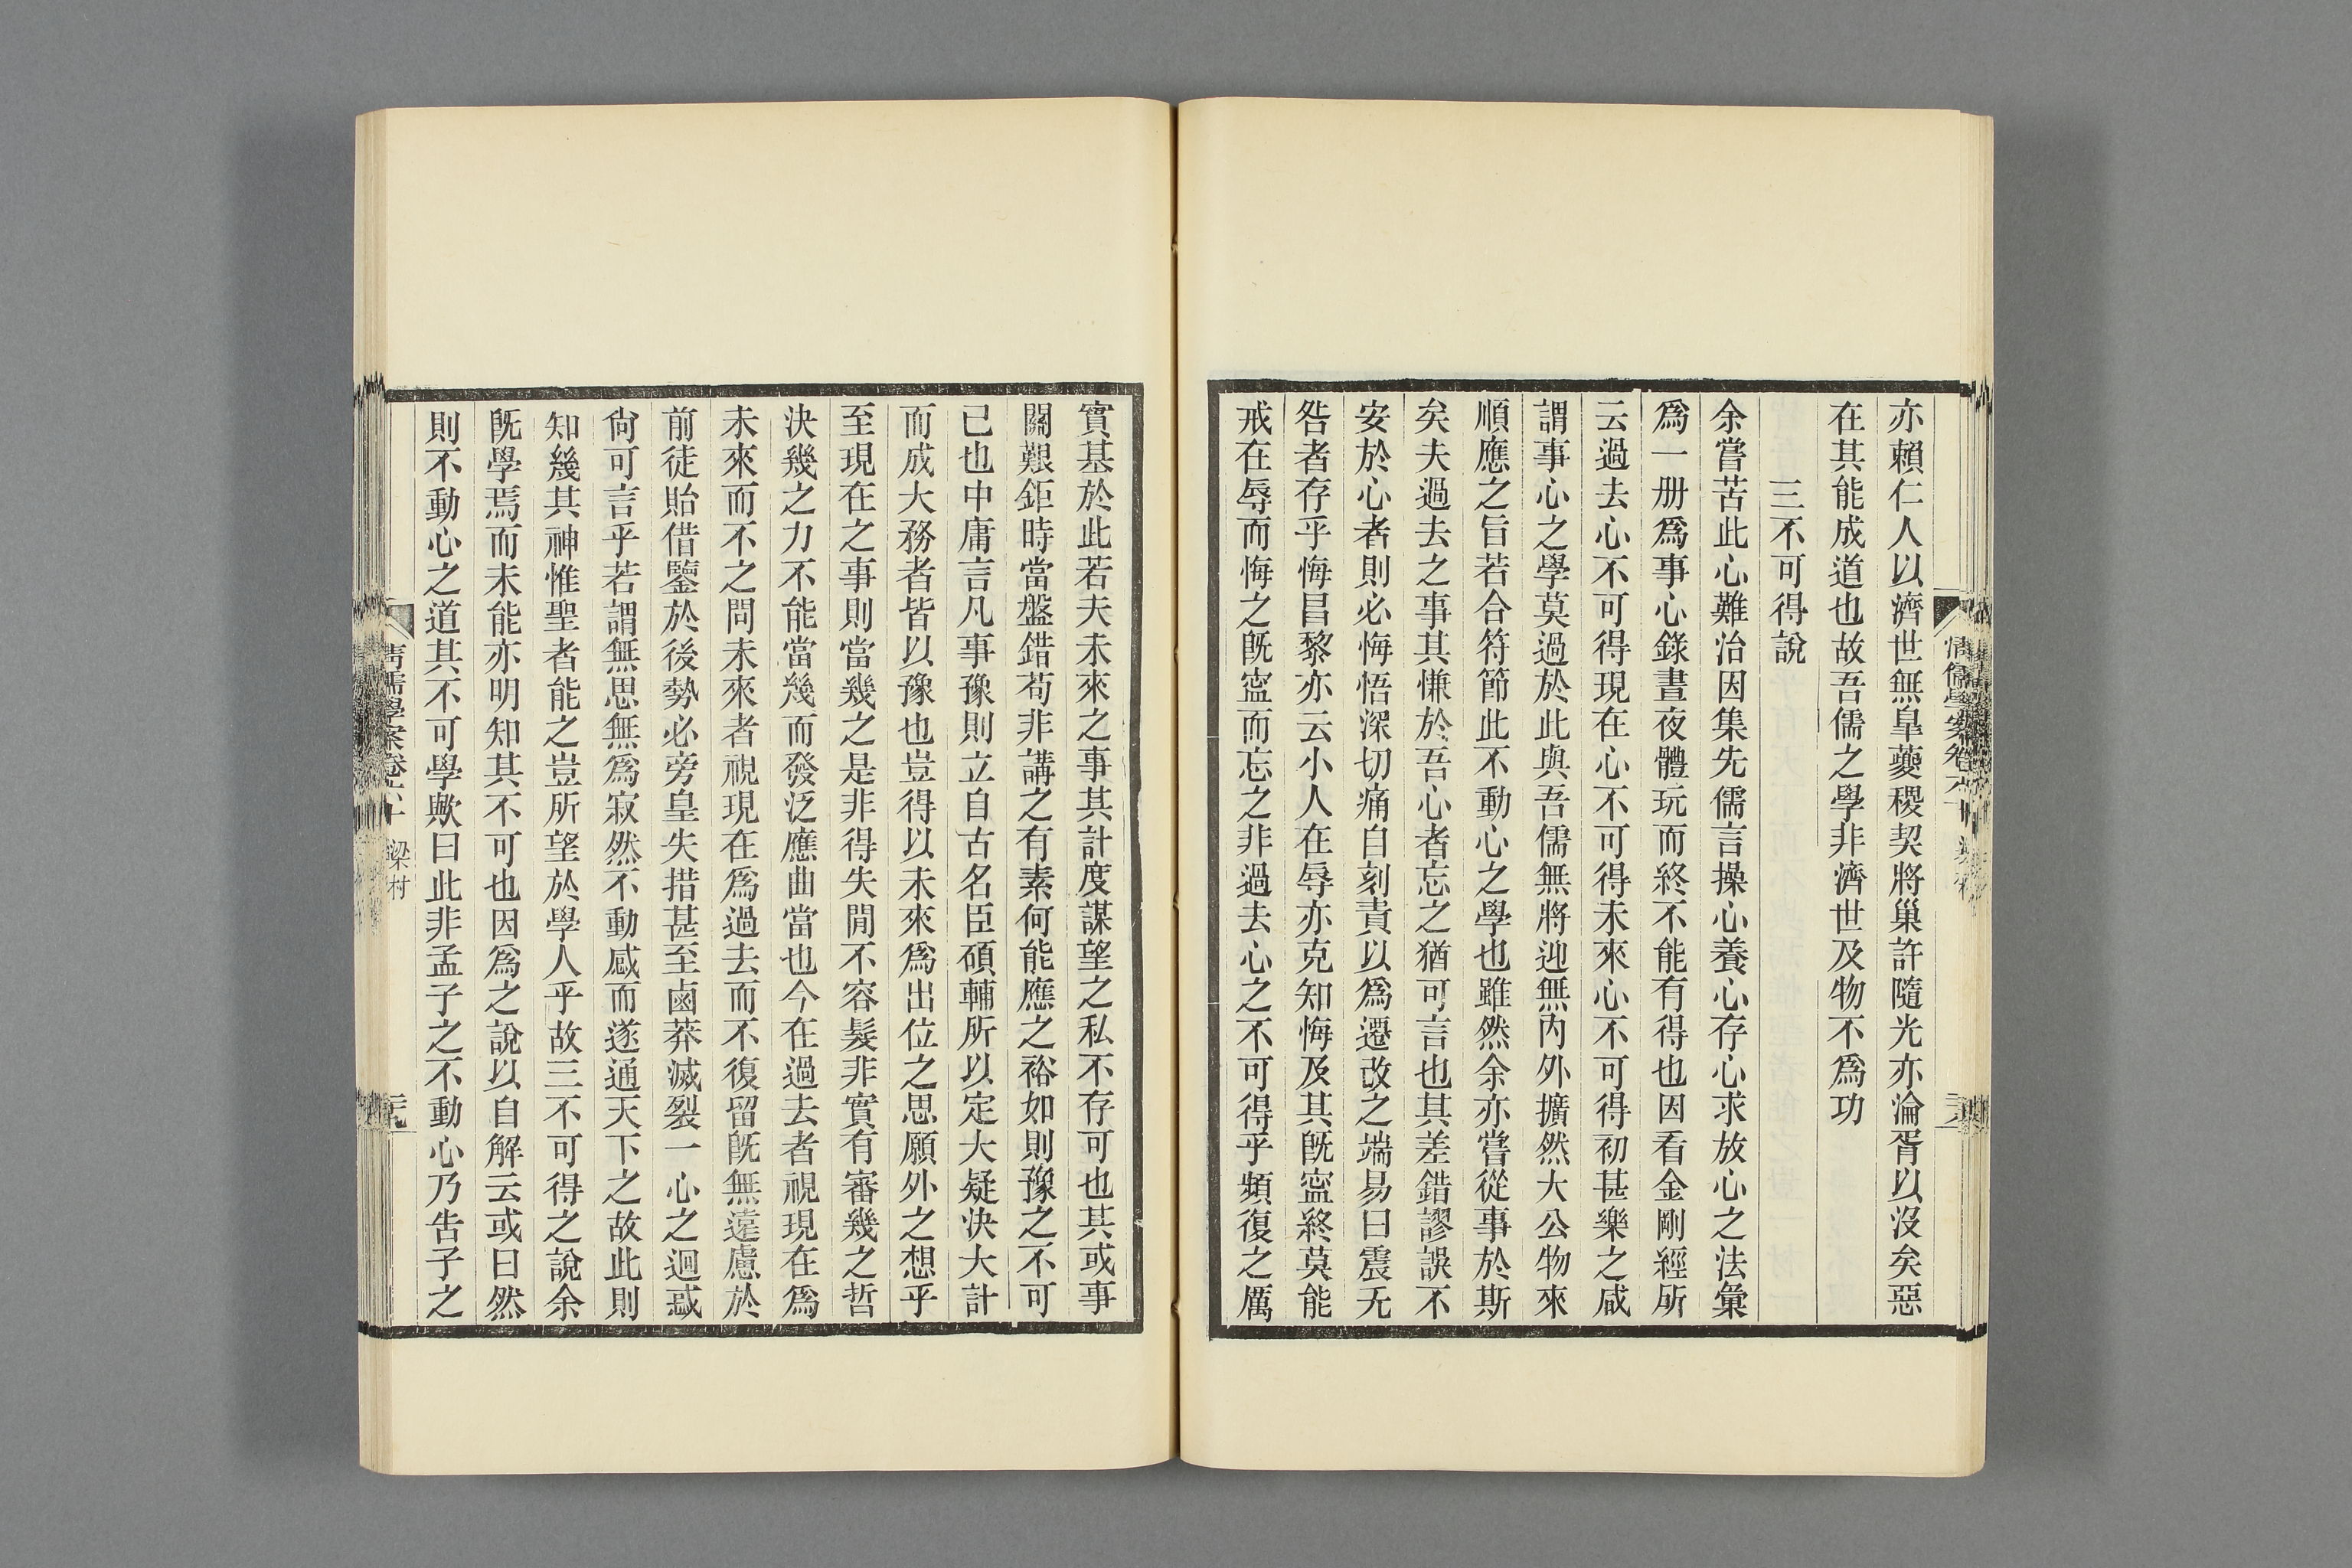 亦賴仁人以濟世無皐夔稷契將巢許隨光亦淪胥以沒矣惡
在其能成道也故吾儒之學非濟世及物不爲功
三不可得說
余嘗苦此心難治因集先儒言操心養心存心求放心之法彙
爲一册爲事心錄晝夜體玩而終不能有得也因看金剛經所
云過去心不可得現在心不可得未來心不可得初甚樂之咸
謂事心之學莫過於此與吾儒無將迎無內外擴然大公物來
順應之旨若合符節此不動心之學也雖然余亦嘗從事於斯
矣夫過去之事其慊於吾心者忘之猶可言也其差錯謬誤不
安於心者則必悔悟深切痛自刻責以爲遷改之端易曰震无
咎者存乎悔昌黎亦云小人在辱亦克知悔及其旣寍終莫能
戒在辱而悔之旣寍而忘之非過去心之不可得乎頻復之厲
實基於此若夫未來之事其計度謀望之私不存可也其或事
關艱鉅時當盤錯苟非講之有素何能應之裕如則豫之不可
已也中庸言凡事豫則立自古名臣碩輔所以定大疑決大計
而成大務者皆以豫也豈得以未來爲出位之思願外之想乎
至現在之事則當幾之是非得失閒不容髮非實有審幾之哲
決幾之力不能當幾而發泛應曲當也今在過去者視現在爲
未來而不之問未來者視現在爲過去而不復留旣無遠慮於
前徒貽借鑒於後勢必旁皇失措甚至鹵莽滅裂一心之迴惑
尙可言乎若謂無思無爲寂然不動感而遂通天下之故此則
知幾其神惟聖者能之豈所望於學人乎故三不可得之說余
旣學焉而未能亦明知其不可也因爲之說以自解云或曰然
則不動心之道其不可學歟曰此非孟子之不動心乃告子之
清儒學案卷六十 梁村
二十九